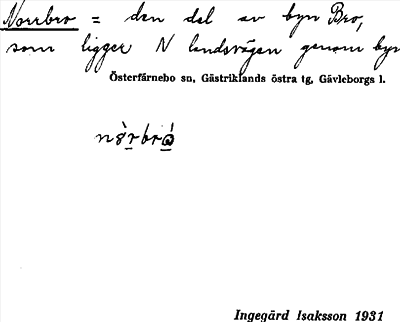 Norrbro = den del av byn Bro,
som ligger N landsvägen genom byn
Österfärnebo sn, Gästriklands östra tg, Gävleborgs l.
Ingegärd Isaksson 1931